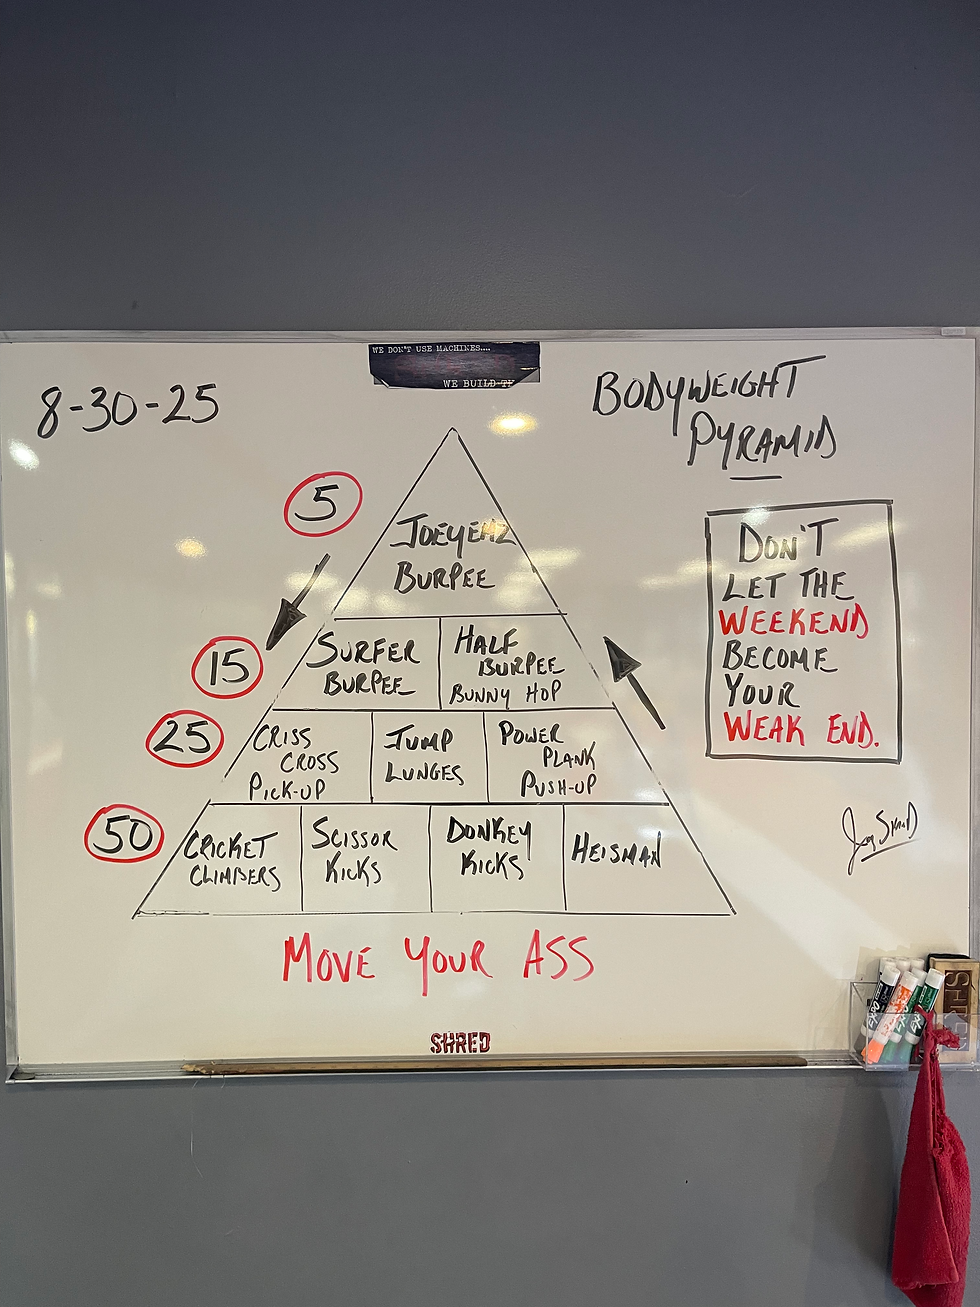 WE DON'T USE MACHINES....
WE BUILD
8-30-25
BODYWEIGHT
PYRAMID
5
JOEYEMZ
BURPEE
15
SURFER
BURPEE
HALF
BURPEE
BUNNY HOP
25
CRISS
CROSS
PICK-UP
JUMP
LUNGES
POWER
PLANK
PUSH-UP
50
CRICKET
CLIMBERS
SCISSOR
KICKS
DONKEY
KICKS
HEISMAN
MOVE YOUR ASS
DON'T
LET THE
WEEKEND
BECOME
YOUR
WEAK END.
SHRED
EXPO
EXPO
EXPO